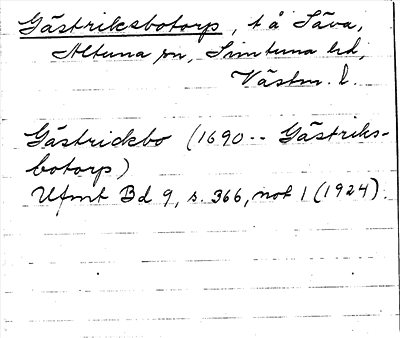 Gästriksbotorp, t å Säva,
Altuna sn, Simtuna hd,
Västm. l.
Gästrickbo (1690 -- Gästriks-
botorp)
Ufmt Bd 9, s. 366, not 1 (1924).